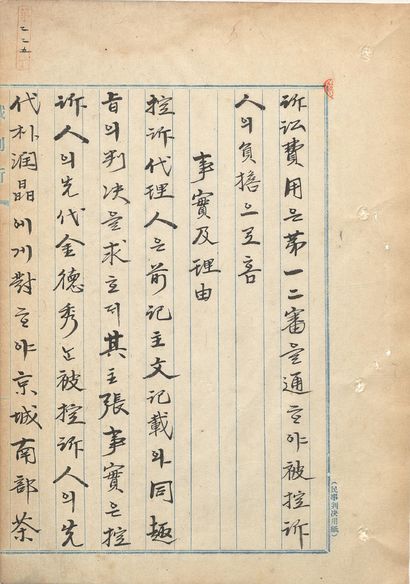 訴訟費用은第一二審을通ᄒᆞ야被控訴
人의負擔으로홈
事實及理由
控訴代理人은前記主文記載와同趣
旨의判决을求ᄒᆞ며其主張事實은控
訴人의先代金德秀는被控訴人의先
代朴潤晶에게對ᄒᆞ야京城南部茶
(民事判決用紙)
二二五